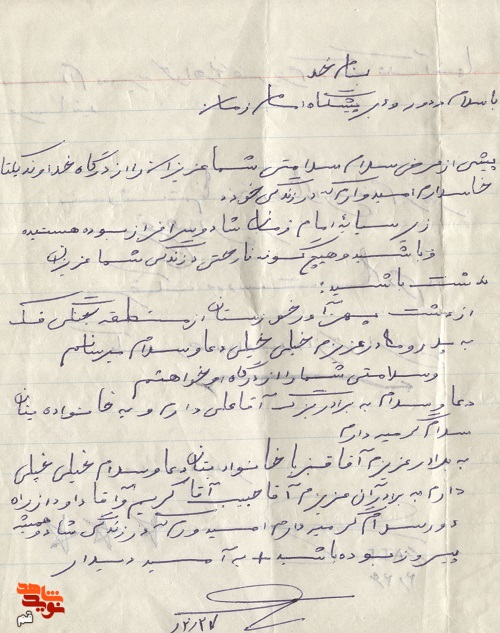 بنام خدا
با سلام و درود بر پیشگاه امام زمان:
پیش از عرض سلام سلامتی شما عزیزان را از درگاه خداوند یکتا
خاستارم امیدوارم که در زندگی خود
زیر سایه امام زمان شاد و سرافراز بوده هستید
و باشید و هیچ گونه نارحتی در زندگی شما عزیزان
نداشت باشید:
از دشت پهن آور خوزستان از منطقه جنگی فکه
به پدر و مادر عزیزم خیلی خیلی دعا و سلام میرسانم
و سلامتی شما را از درگاه او خواهشتم
دعا و سلام به برادر بزرگ آقا علی دارم و به خانواده یتان
سلام گرمی دارم
به برادر عزیزم آقا با خانواده یتان دعا و سلام خیلی خیلی
دارم به برادران عزیزم آقا حبیب آقا کریم و آقا داود از راه
دور سلام گرمی دارم امیدورم که در زندگی شاد و همیشه
پیروز بوده باشید + به آمید دیدار
۱۲/۲۷
شاهد
نوید
قم